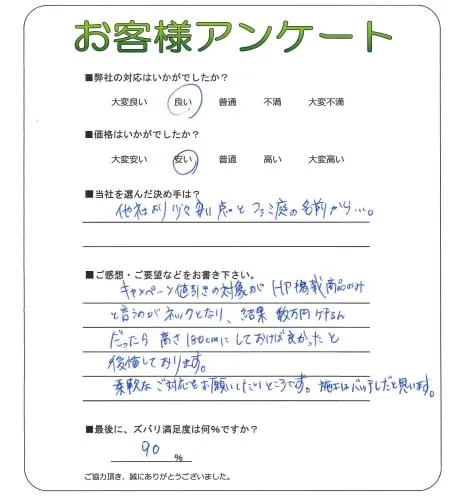 お客様アンケート
■弊社の対応はいかがでしたか？
大変良い 良い 普通 不満 大変不満
■価格はいかがでしたか？
大変安い 安い 普通 高い 大変高い
■当社を選んだ決め手は？
他社より少々安い点とファミ庭の名前から…。
■ご感想・ご要望などをお書き下さい。
キャンペーン値引きの対象がHP掲載商品のみ
と言うのがネックとなり、結果 数万円ケチるん
だったら 高さ180cmにしておけば良かったと
後悔しております。
柔軟なご対応をお願いしたいところです。施工はバッチシだと思います。
■最後に、ズバリ満足度は何%ですか？
90 %
ご協力頂き、誠にありがとうございました。